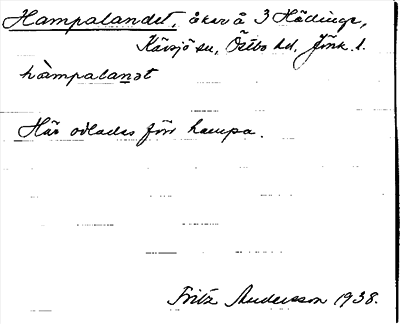 Hampalandet, åker å 3 Hädinge,
Kävsjö sn, Östbo hd, Jönk. l.
hàmpalanət
Här odlades förr hampa.
Fritz Andersson 1938.